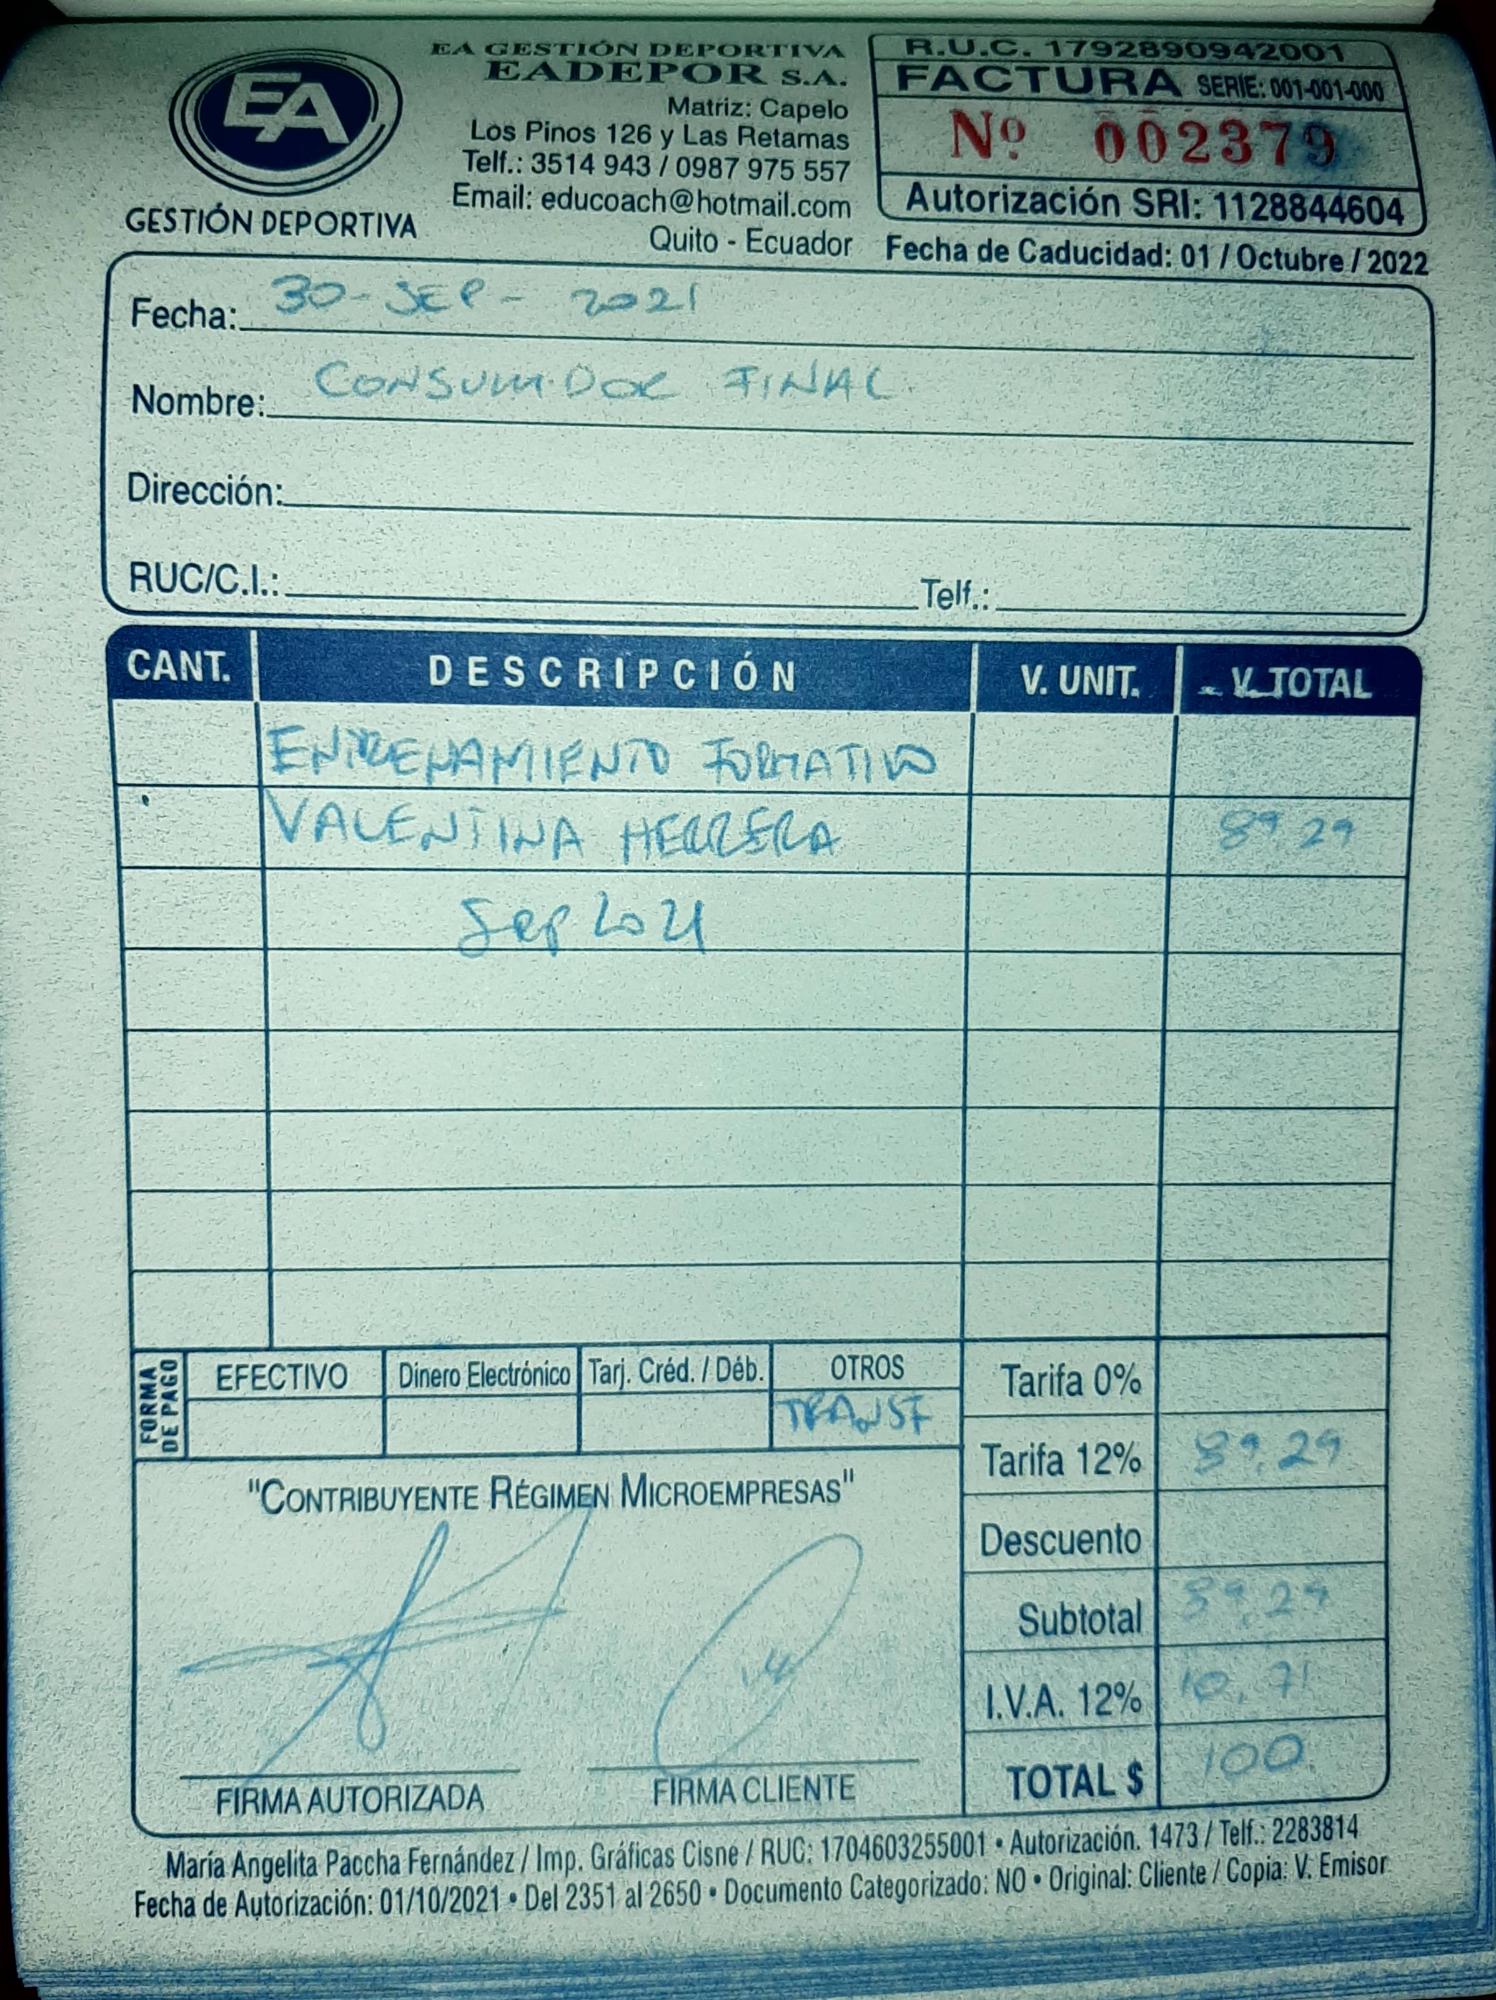 EA
GESTIÓN DEPORTIVA
EA GESTIÓN DEPORTIVA
EADEPOR S.A.
Matriz: Capelo
Los Pinos 126 y Las Retamas
Telf.: 3514 943 / 0987 975 557
Email: educoach@hotmail.com
Quito - Ecuador
R.U.C. 1792890942001
FACTURA SERIE: 001-001-000
Nº 002379
Autorización SRI: 1128844604
Fecha de Caducidad: 01 / Octubre / 2022
Fecha: 30-SEP-2021
Nombre: CONSUMIDOR FINAL
Dirección:
RUC/C.I.: Telf.:
CANT. DESCRIPCIÓN V. UNIT. V. TOTAL
ENTRENAMIENTO FORMATIVO
VALENTINA HERRERA 89.29
Sep 2021
FORMA DE PAGO
EFECTIVO Dinero Electrónico Tarj. Créd. / Déb. OTROS
TRANSF
Tarifa 0%
Tarifa 12% 89.29
Descuento
Subtotal 89.29
I.V.A. 12% 10.71
TOTAL $ 100
"CONTRIBUYENTE RÉGIMEN MICROEMPRESAS"
FIRMA AUTORIZADA FIRMA CLIENTE
María Angelita Paccha Fernández / Imp. Gráficas Cisne / RUC: 1704603255001 • Autorización. 1473 / Telf.: 2283814
Fecha de Autorización: 01/10/2021 • Del 2351 al 2650 • Documento Categorizado: NO • Original: Cliente / Copia: V. Emisor